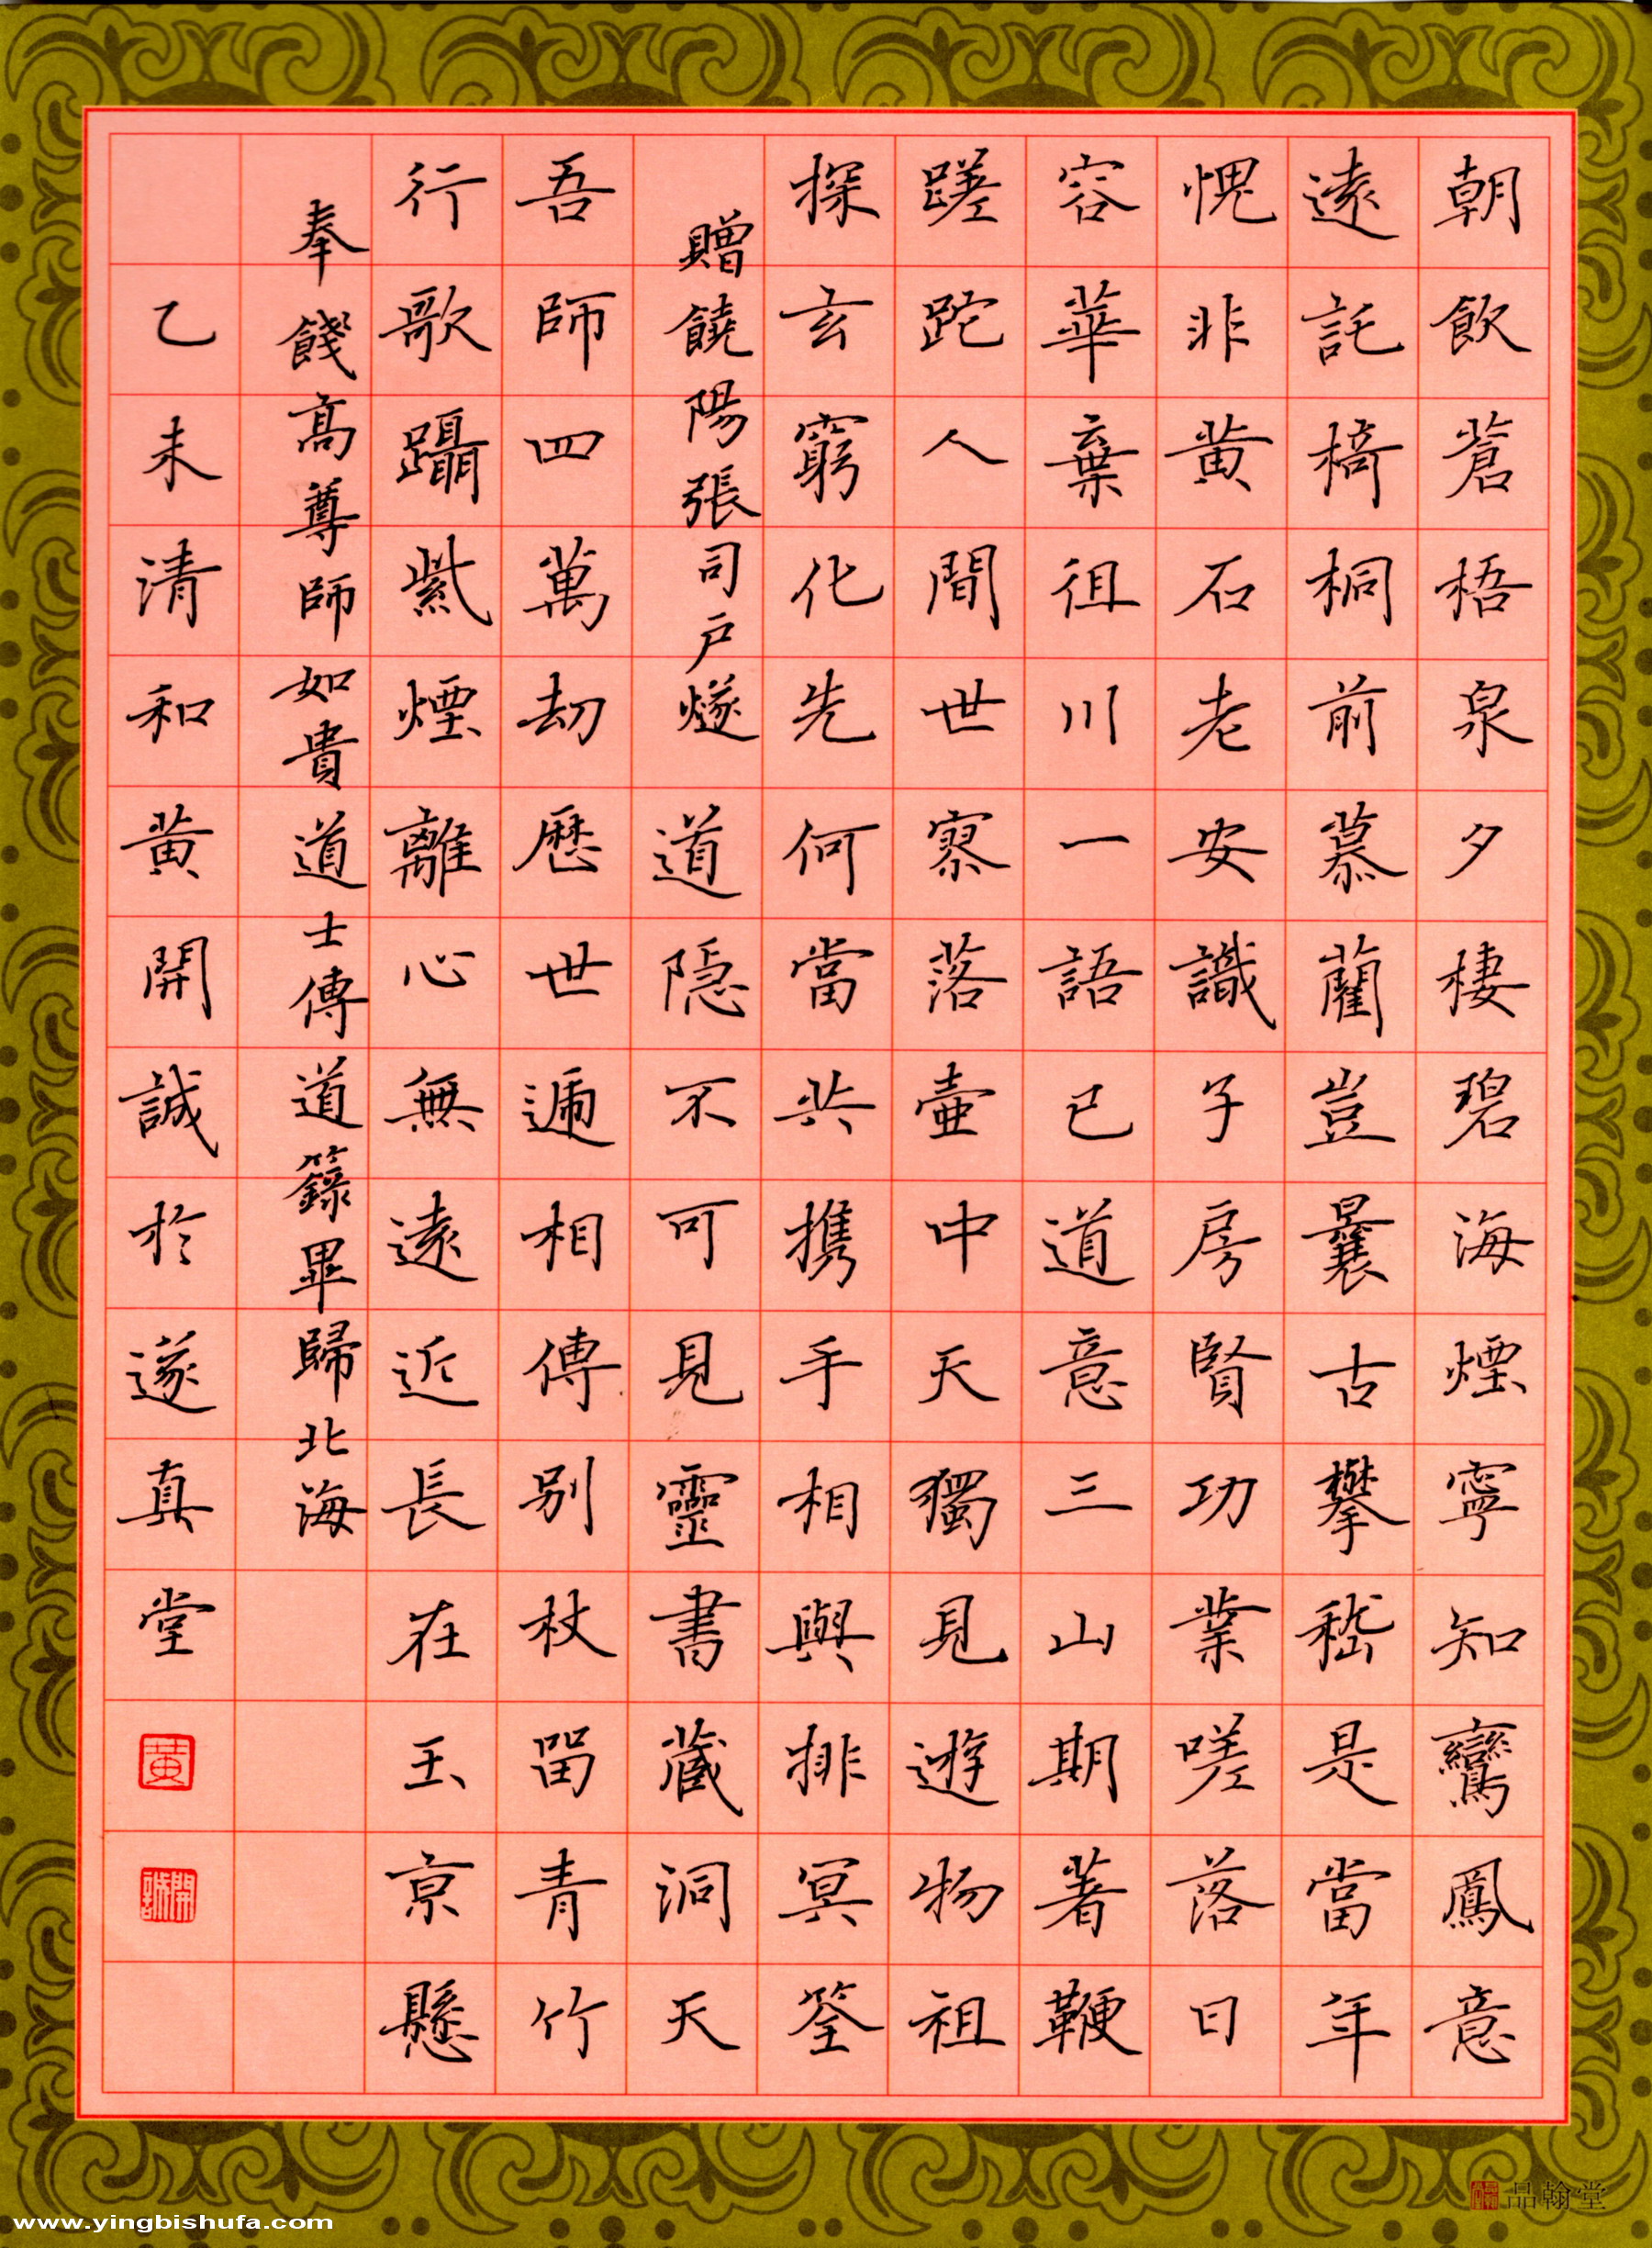 朝飲蒼梧泉夕棲碧海煙寧知鸞鳳意
遠託椅桐前慕藺豈曩古攀嵇是當年
愧非黃石老安識子房賢功業嗟落日
容華棄徂川一語已道意三山期著鞭
蹉跎人間世寥落壺中天獨見遊物祖
探玄窮化先何當共攜手相與排冥筌
贈饒陽張司戶燧道隱不可見靈書藏洞天
吾師四萬劫歷世遞相傳別杖留青竹
行歌躡紫煙離心無遠近長在玉京懸
奉餞高尊師如貴道士傳道籙畢歸北海
乙未清和黃開誠於遂真堂
黃
開誠
品翰堂
www.yingbishufa.com